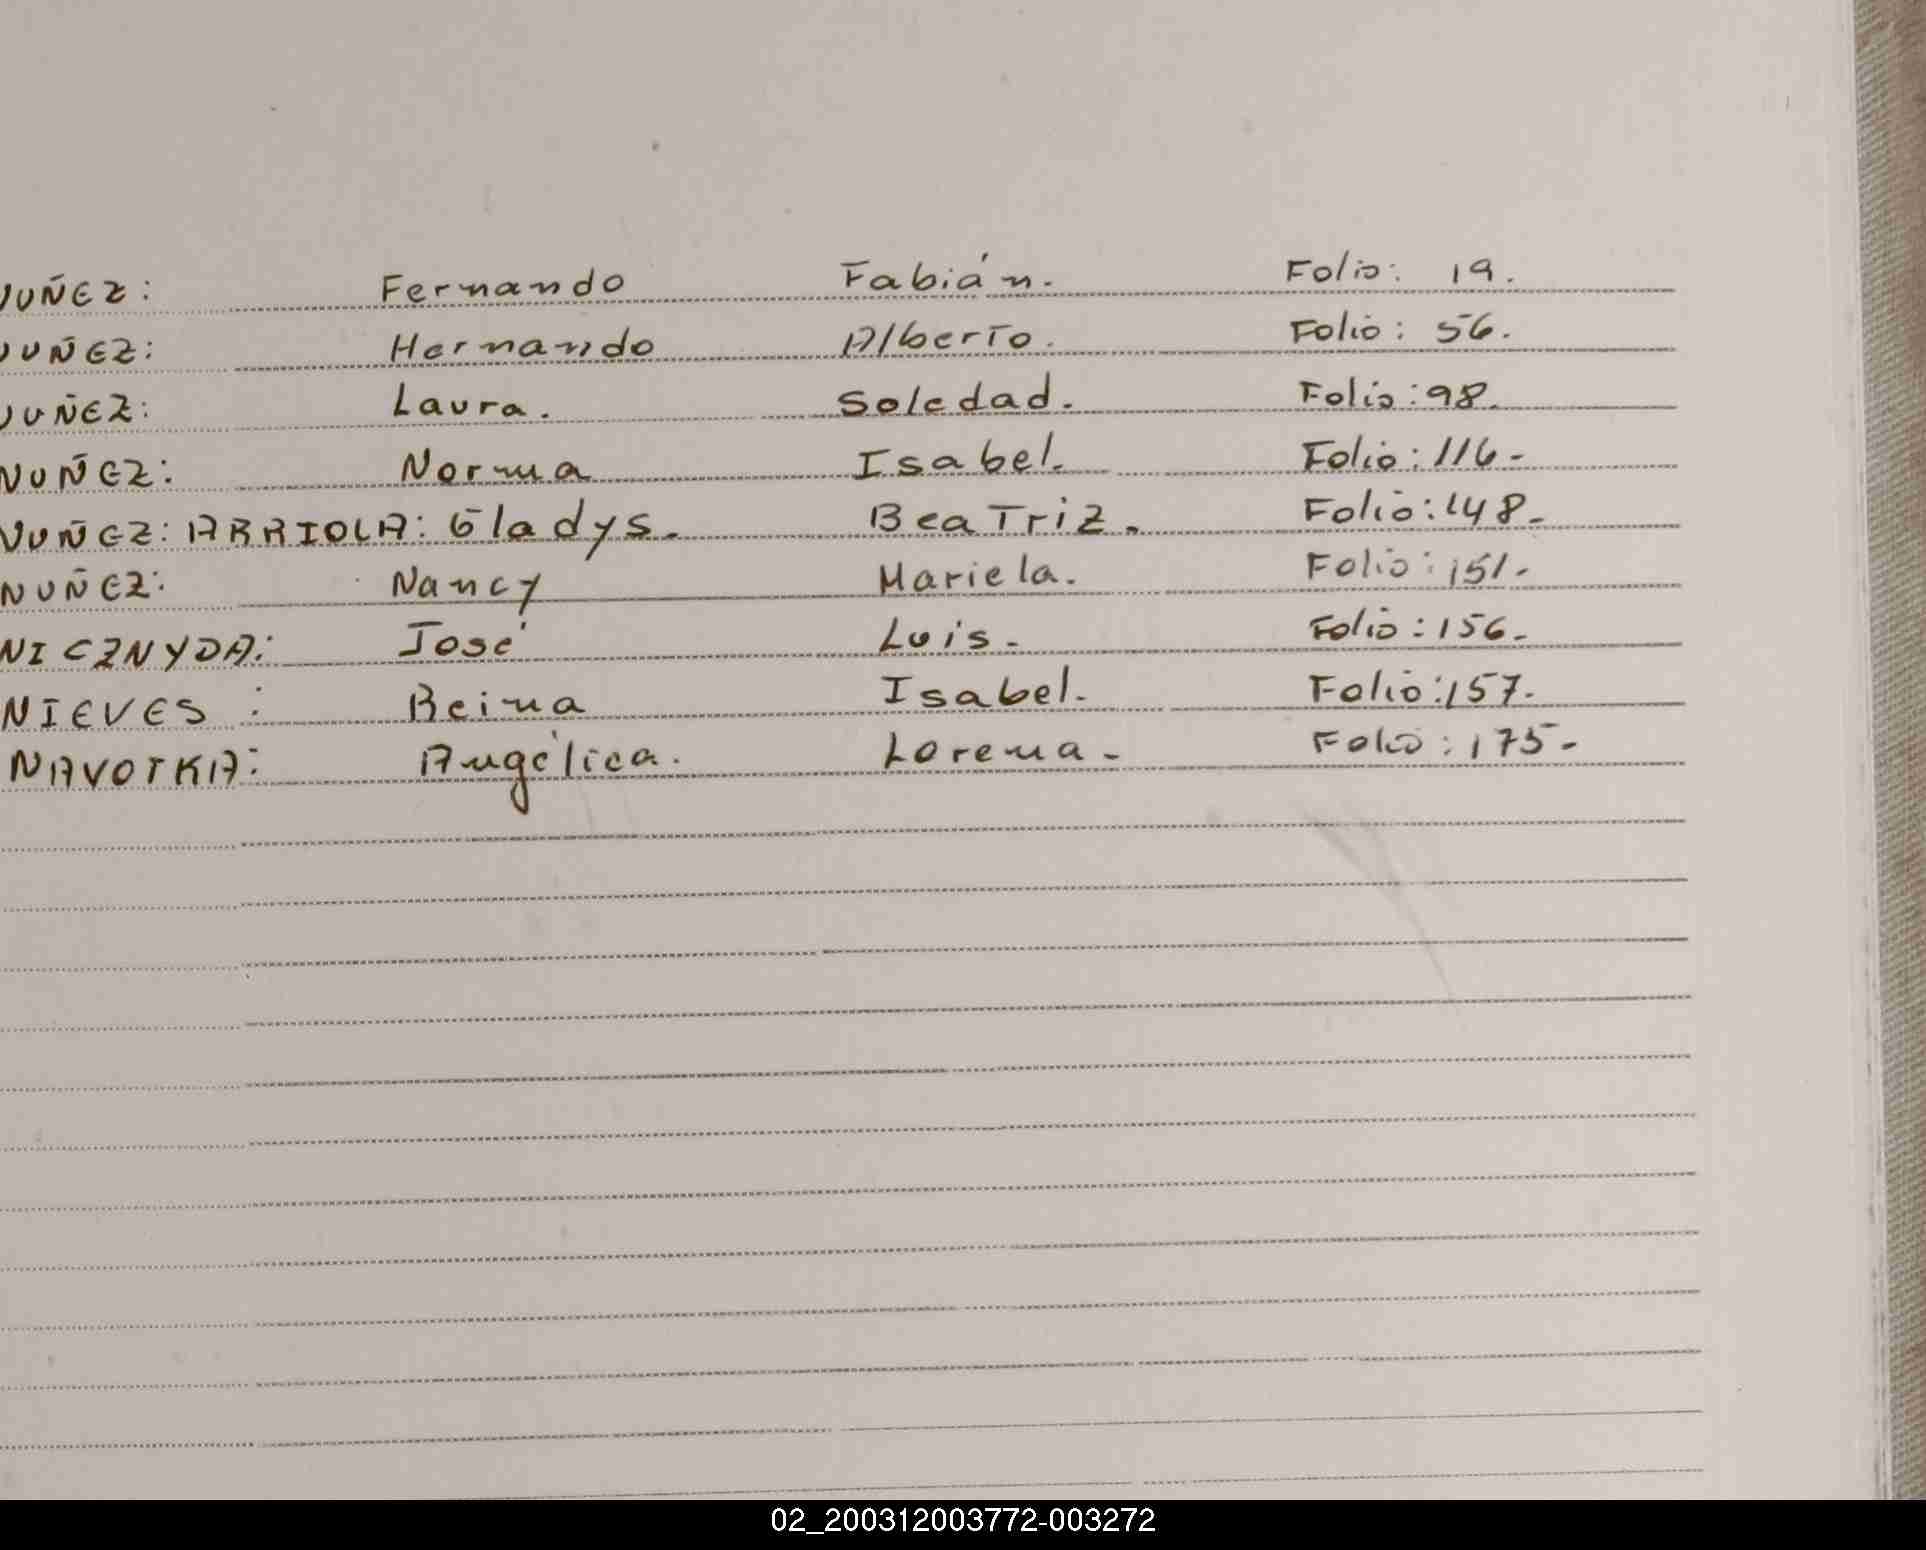 NUÑEZ: Fernando Fabián. Folio: 19.
NUÑEZ: Hernando Alberto. Folio: 56.
NUÑEZ: Laura. Soledad. Folio: 98.
NUÑEZ: Norma Isabel. Folio: 116-
NUÑEZ: ARRIOLA: Gladys. Beatriz. Folio: 148-
NUÑEZ: Nancy Mariela. Folio: 151-
NICZNYDA: José Luis. Folio: 156-
NIEVES: Reina Isabel. Folio: 157.
NAVOTKA: Angélica. Lorena- Folio: 175-
02_200312003772-003272